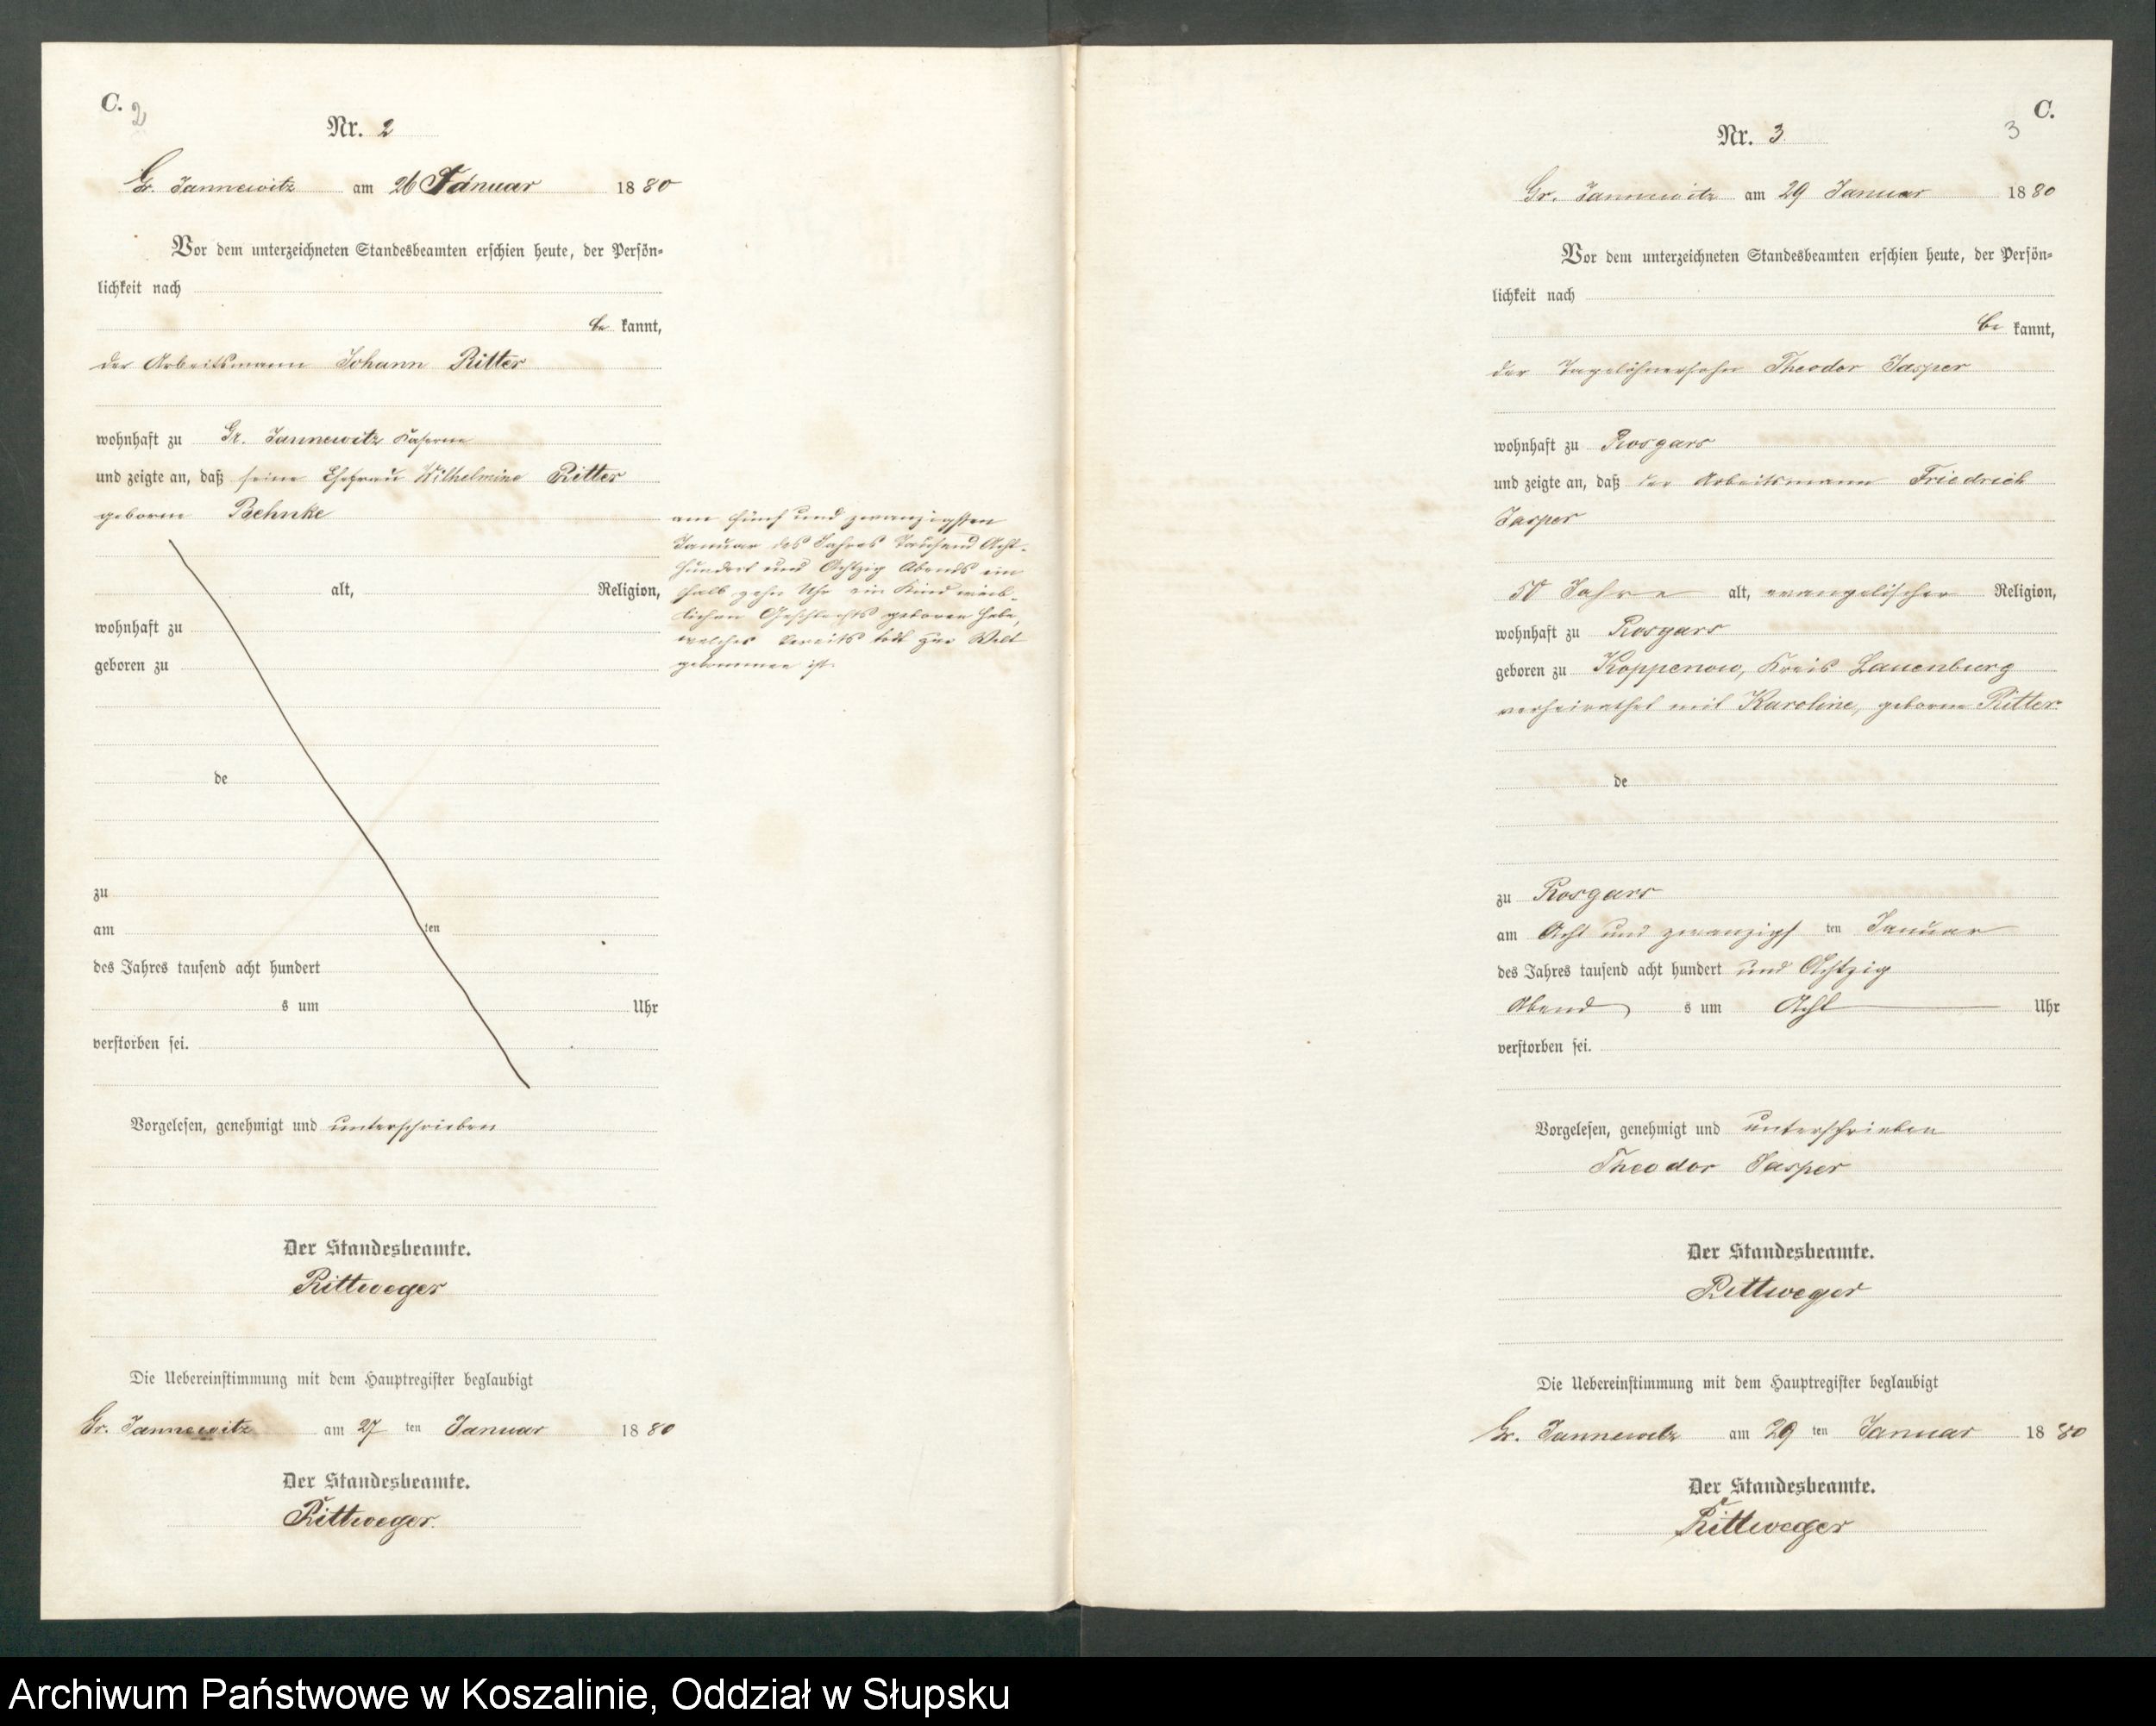 C.
2
Nr. 2
Gr. Jannewitz am 26 Januar 1880
Vor dem unterzeichneten Standesbeamten erschien heute, der Persön-
lichkeit nach
be kannt,
der Arbeitsmann Johann Ritter
wohnhaft zu Gr. Jannewitz Kaserne
und zeigte an, daß seine Ehefrau Wilhelmine Ritter
geborne Behnke
alt, Religion,
wohnhaft zu
geboren zu
de
zu
am ten
des Jahres tausend acht hundert
s um Uhr
verstorben sei.
am fünf und zwanzigsten
Januar des Jahres Tausend Acht-
hundert und Achtzig Abends um
halb zehn Uhr ein Kind weib-
lichen Geschlechts geboren habe,
welches bereits todt zur Welt
gekommen ist.
Vorgelesen, genehmigt und unterschrieben
Der Standesbeamte.
Rittweger
Die Uebereinstimmung mit dem Hauptregister beglaubigt
Gr. Jannewitz am 27 ten Januar 1880
Der Standesbeamte.
Rittweger.
C.
3
Nr. 3
Gr. Jannewitz am 29 Januar 1880
Vor dem unterzeichneten Standesbeamten erschien heute, der Persön-
lichkeit nach
be kannt,
der Tagelöhnersohn Theodor Jasper
wohnhaft zu Rosgars
und zeigte an, daß der Arbeitsmann Friedrich
Jasper
50 Jahre alt, evangelischer Religion,
wohnhaft zu Rosgars
geboren zu Koppenow, Kreis Lauenburg
verheirathet mit Karoline, geborne Ritter
de
zu Rosgars
am Acht und zwanzigs ten Januar
des Jahres tausend acht hundert und Achtzig
Abend s um Acht Uhr
verstorben sei.
Vorgelesen, genehmigt und unterschrieben
Theodor Jasper
Der Standesbeamte.
Rittweger
Die Uebereinstimmung mit dem Hauptregister beglaubigt
Gr. Jannewitz am 29 ten Januar 1880
Der Standesbeamte.
Rittweger
Archiwum Państwowe w Koszalinie, Oddział w Słupsku